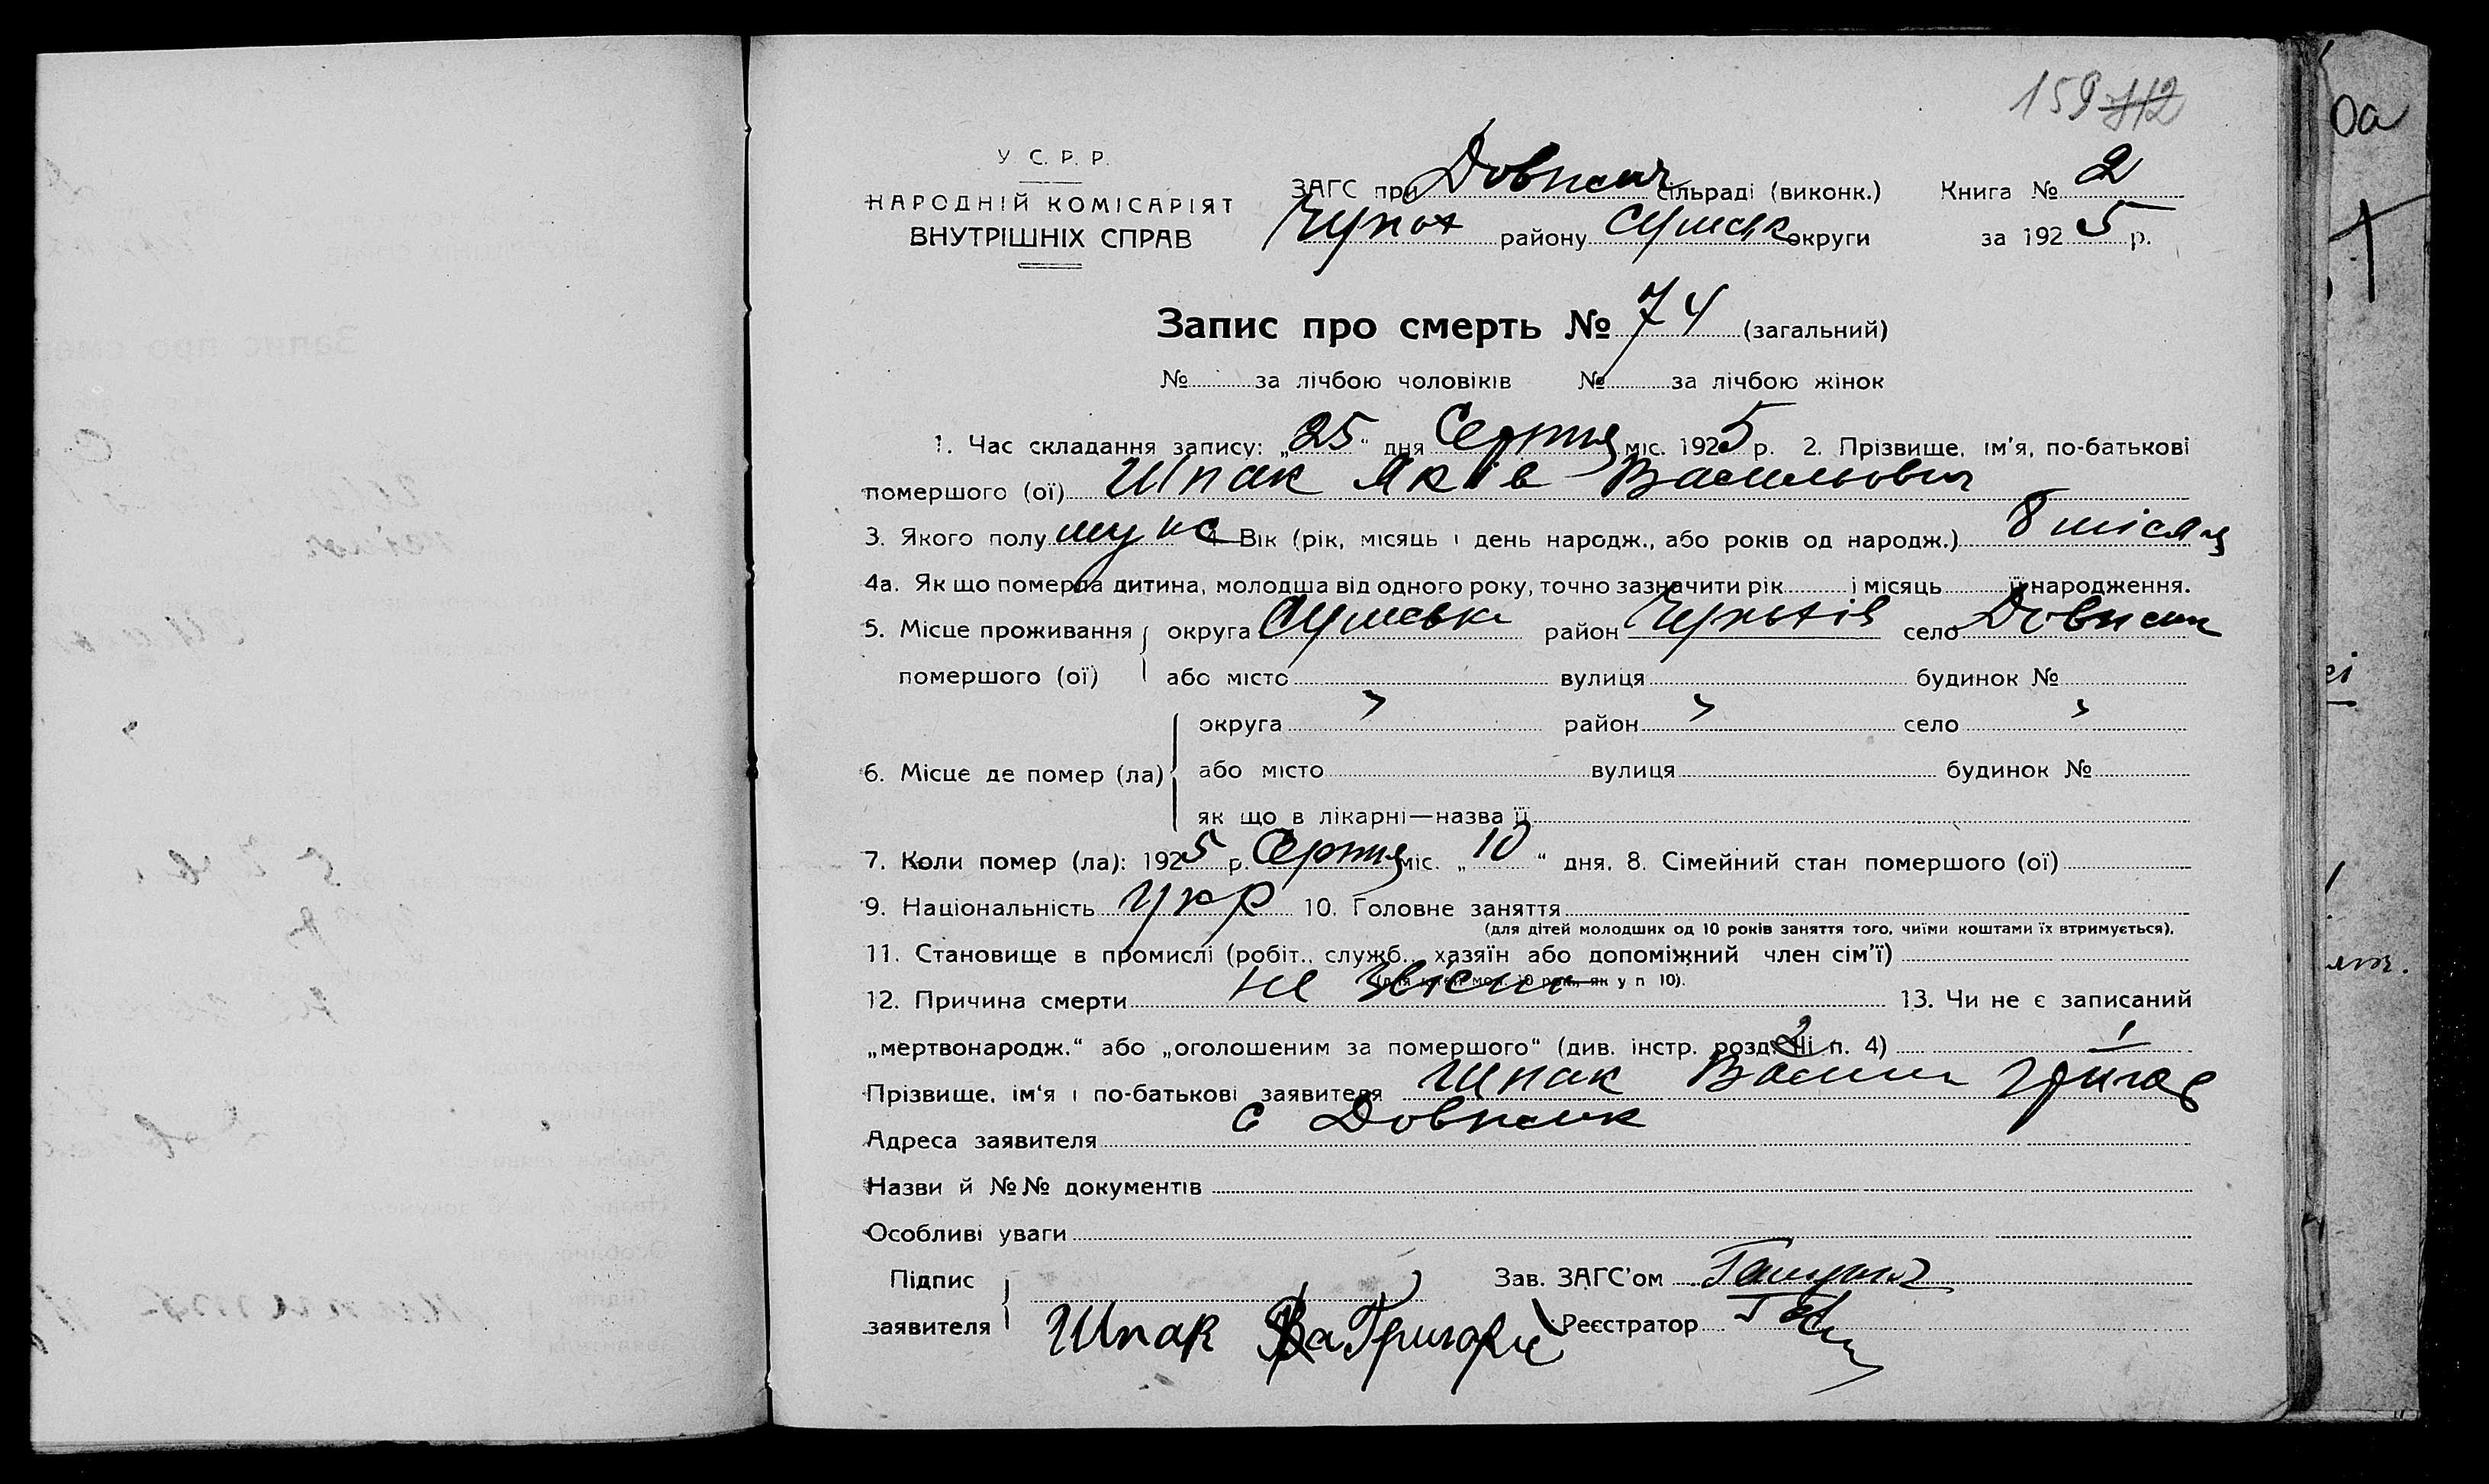 159 712
У С. Р. Р.
НАРОДНІЙ КОМІСАРІЯТ
ВНУТРІШНІХ СПРАВ
ЗАГС при сільраді (виконк.) Книга № 2
району Сумськ округи за 1925 р.
Запис про смерть № 74 (загальний)
№ за лічбою чоловіків № за лічбою жінок
1. Час складання запису: „25“ дня Серпня міс. 1925 р. 2. Прізвище, ім'я, по-батькові
помершого (ої) Шпак Яків Васильович
3. Якого полу муж 4. Вік (рік, місяць і день народж., або років од народж.) 8 місяц
4а. Як що померла дитина, молодша від одного року, точно зазначити рік і місяць її народження.
5. Місце проживання помершого (ої) округа Сумська район село
або місто вулиця будинок №
6. Місце де помер (ла) округа " район " село "
або місто вулиця будинок №
як що в лікарні—назва її
7. Коли помер (ла): 1925 р. Серпня міс. „10“ дня. 8. Сімейний стан помершого (ої)
9. Національність Укр 10. Головне заняття
(для дітей молодших од 10 років заняття того, чиїми коштами їх втримується).
11. Становище в промислі (робіт., служб., хазяїн або допоміжний член сім'ї)
(для дітей мол. 10 рок., як у п 10).
12. Причина смерти не звісно 13. Чи не є записаний
„мертвонародж.“ або „оголошеним за помершого“ (див. інстр. розд. п. 4)
Прізвище, ім'я і по-батькові заявителя Шпак Васил Григор
Адреса заявителя с
Назви й №№ документів
Особливі уваги
Підпис заявителя Шпак Ва Григорів
Зав. ЗАГС'ом
Реєстратор